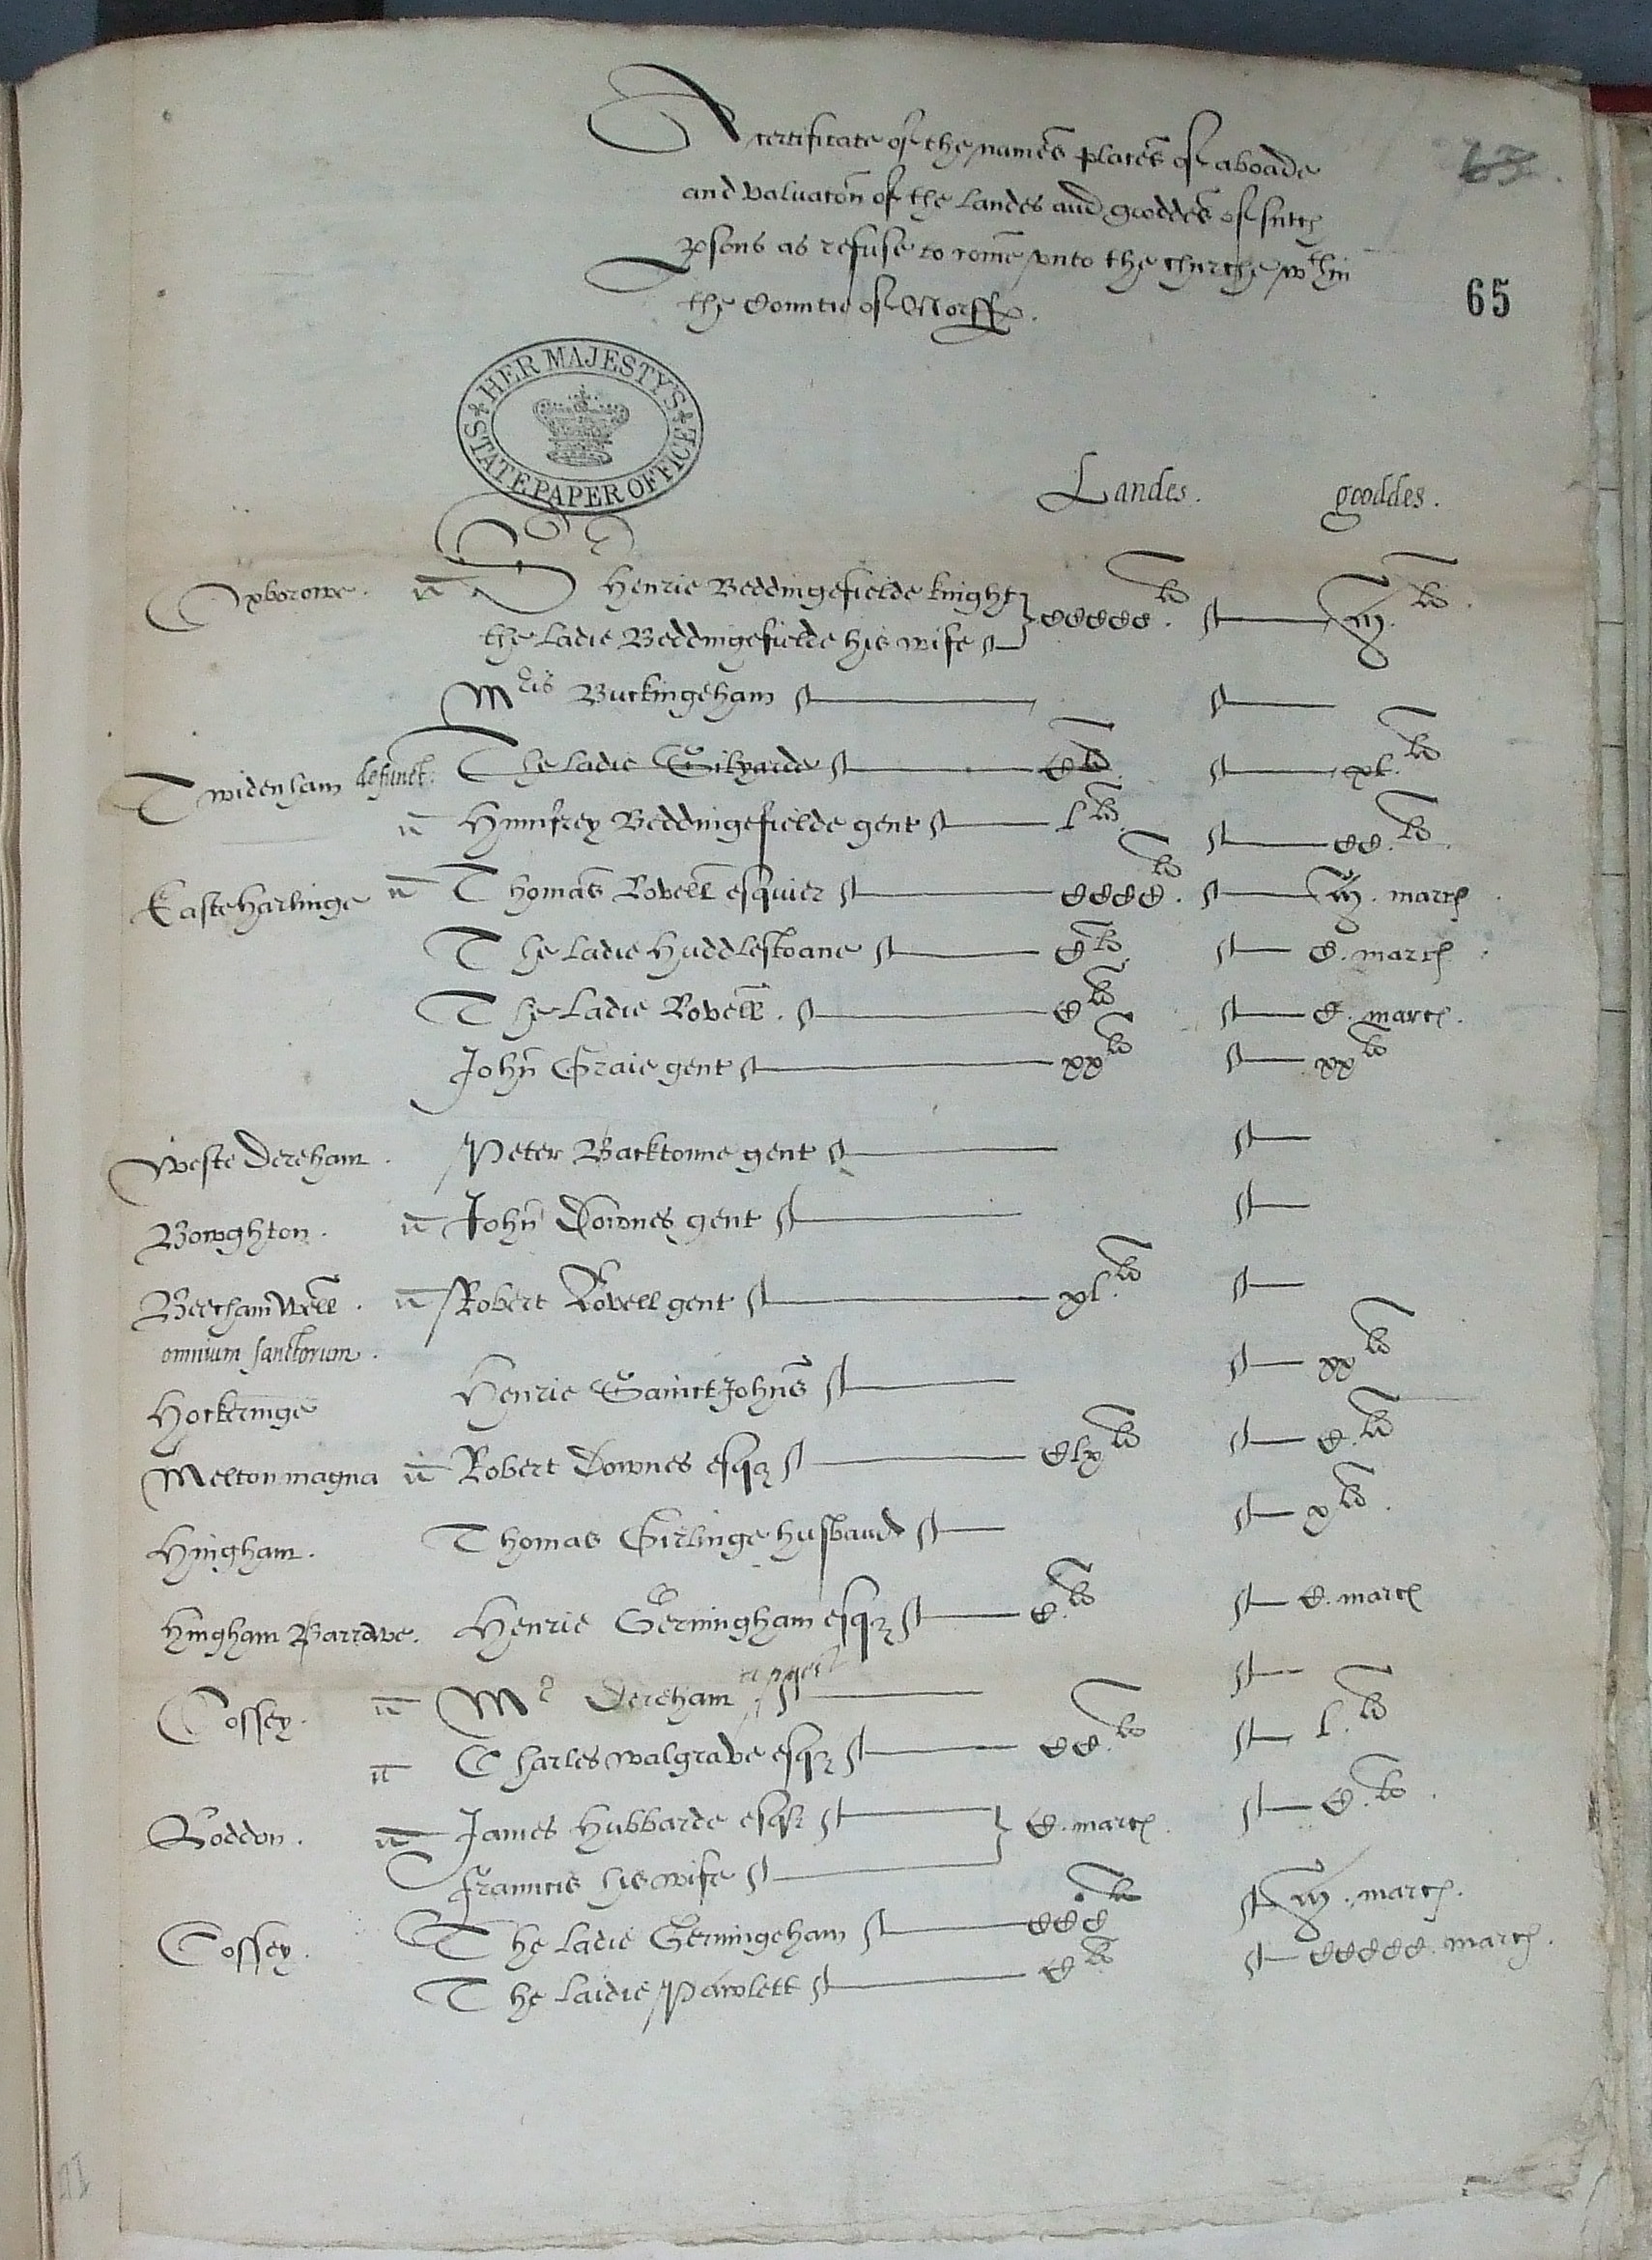 A certificate of the names places of aboade
63.
and valuacon of the Landes and gooddes of sutch
psons as refuse to come vnto the churche wthin
the Countie of Norff.
65
HER MAJESTY'S STATE PAPER OFFICE
Landes. gooddes.
Oxborowe. Sr Henrie Beddingefielde knight
the Ladie Beddingefielde his wife CCCCC li. iij. li.
Mris Buckingeham
Twidenham defunct. The Ladie Silyarde C li. xl. li
Humfrey Beddingefielde gent l li. CC. li.
Easteharlinge Thomas Lovell esquier CCCC li. iij. marc
The Ladie Huddlestoane C li. C. marc
The Ladie Lovell. C li C. marc.
John Graie gent xx li xx li
Weste Dereham. Peter Backtonne gent
Bowghton. John Downes gent
Beechamwell. Robert Lovell gent xl. li
omnium sanctorum.
Henrie Sainct Johns xx li
Hockeringe
Melton magna Robert Downes esq Clx li C. li
Hingham. Thomas Girlinge husband x li.
Hingham Parrave. Henrie Gerningham esq C. li C. marc
Cossey. Mr Dereham
Charles walgrave esq CC. li l. li
Loddon. James Hubbarde esq C. marc. C. li.
Frauncis his wife
Cossey. The Ladie Gerningeham CCC li iij. marc.
The Laidie Pawlett C li CCCCC. marc.